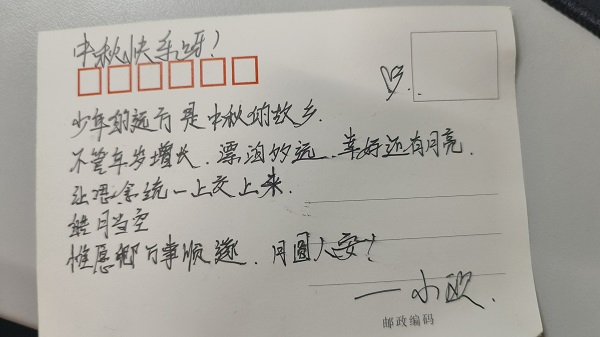 中秋快乐呀！
少年的远方是中秋的故乡.
不管年岁增长、漂泊的远、幸好还有月亮.
让思念统一上交上来.
皓月当空
惟愿卿万事顺遂、月圆人安！
——小欧.
邮政编码